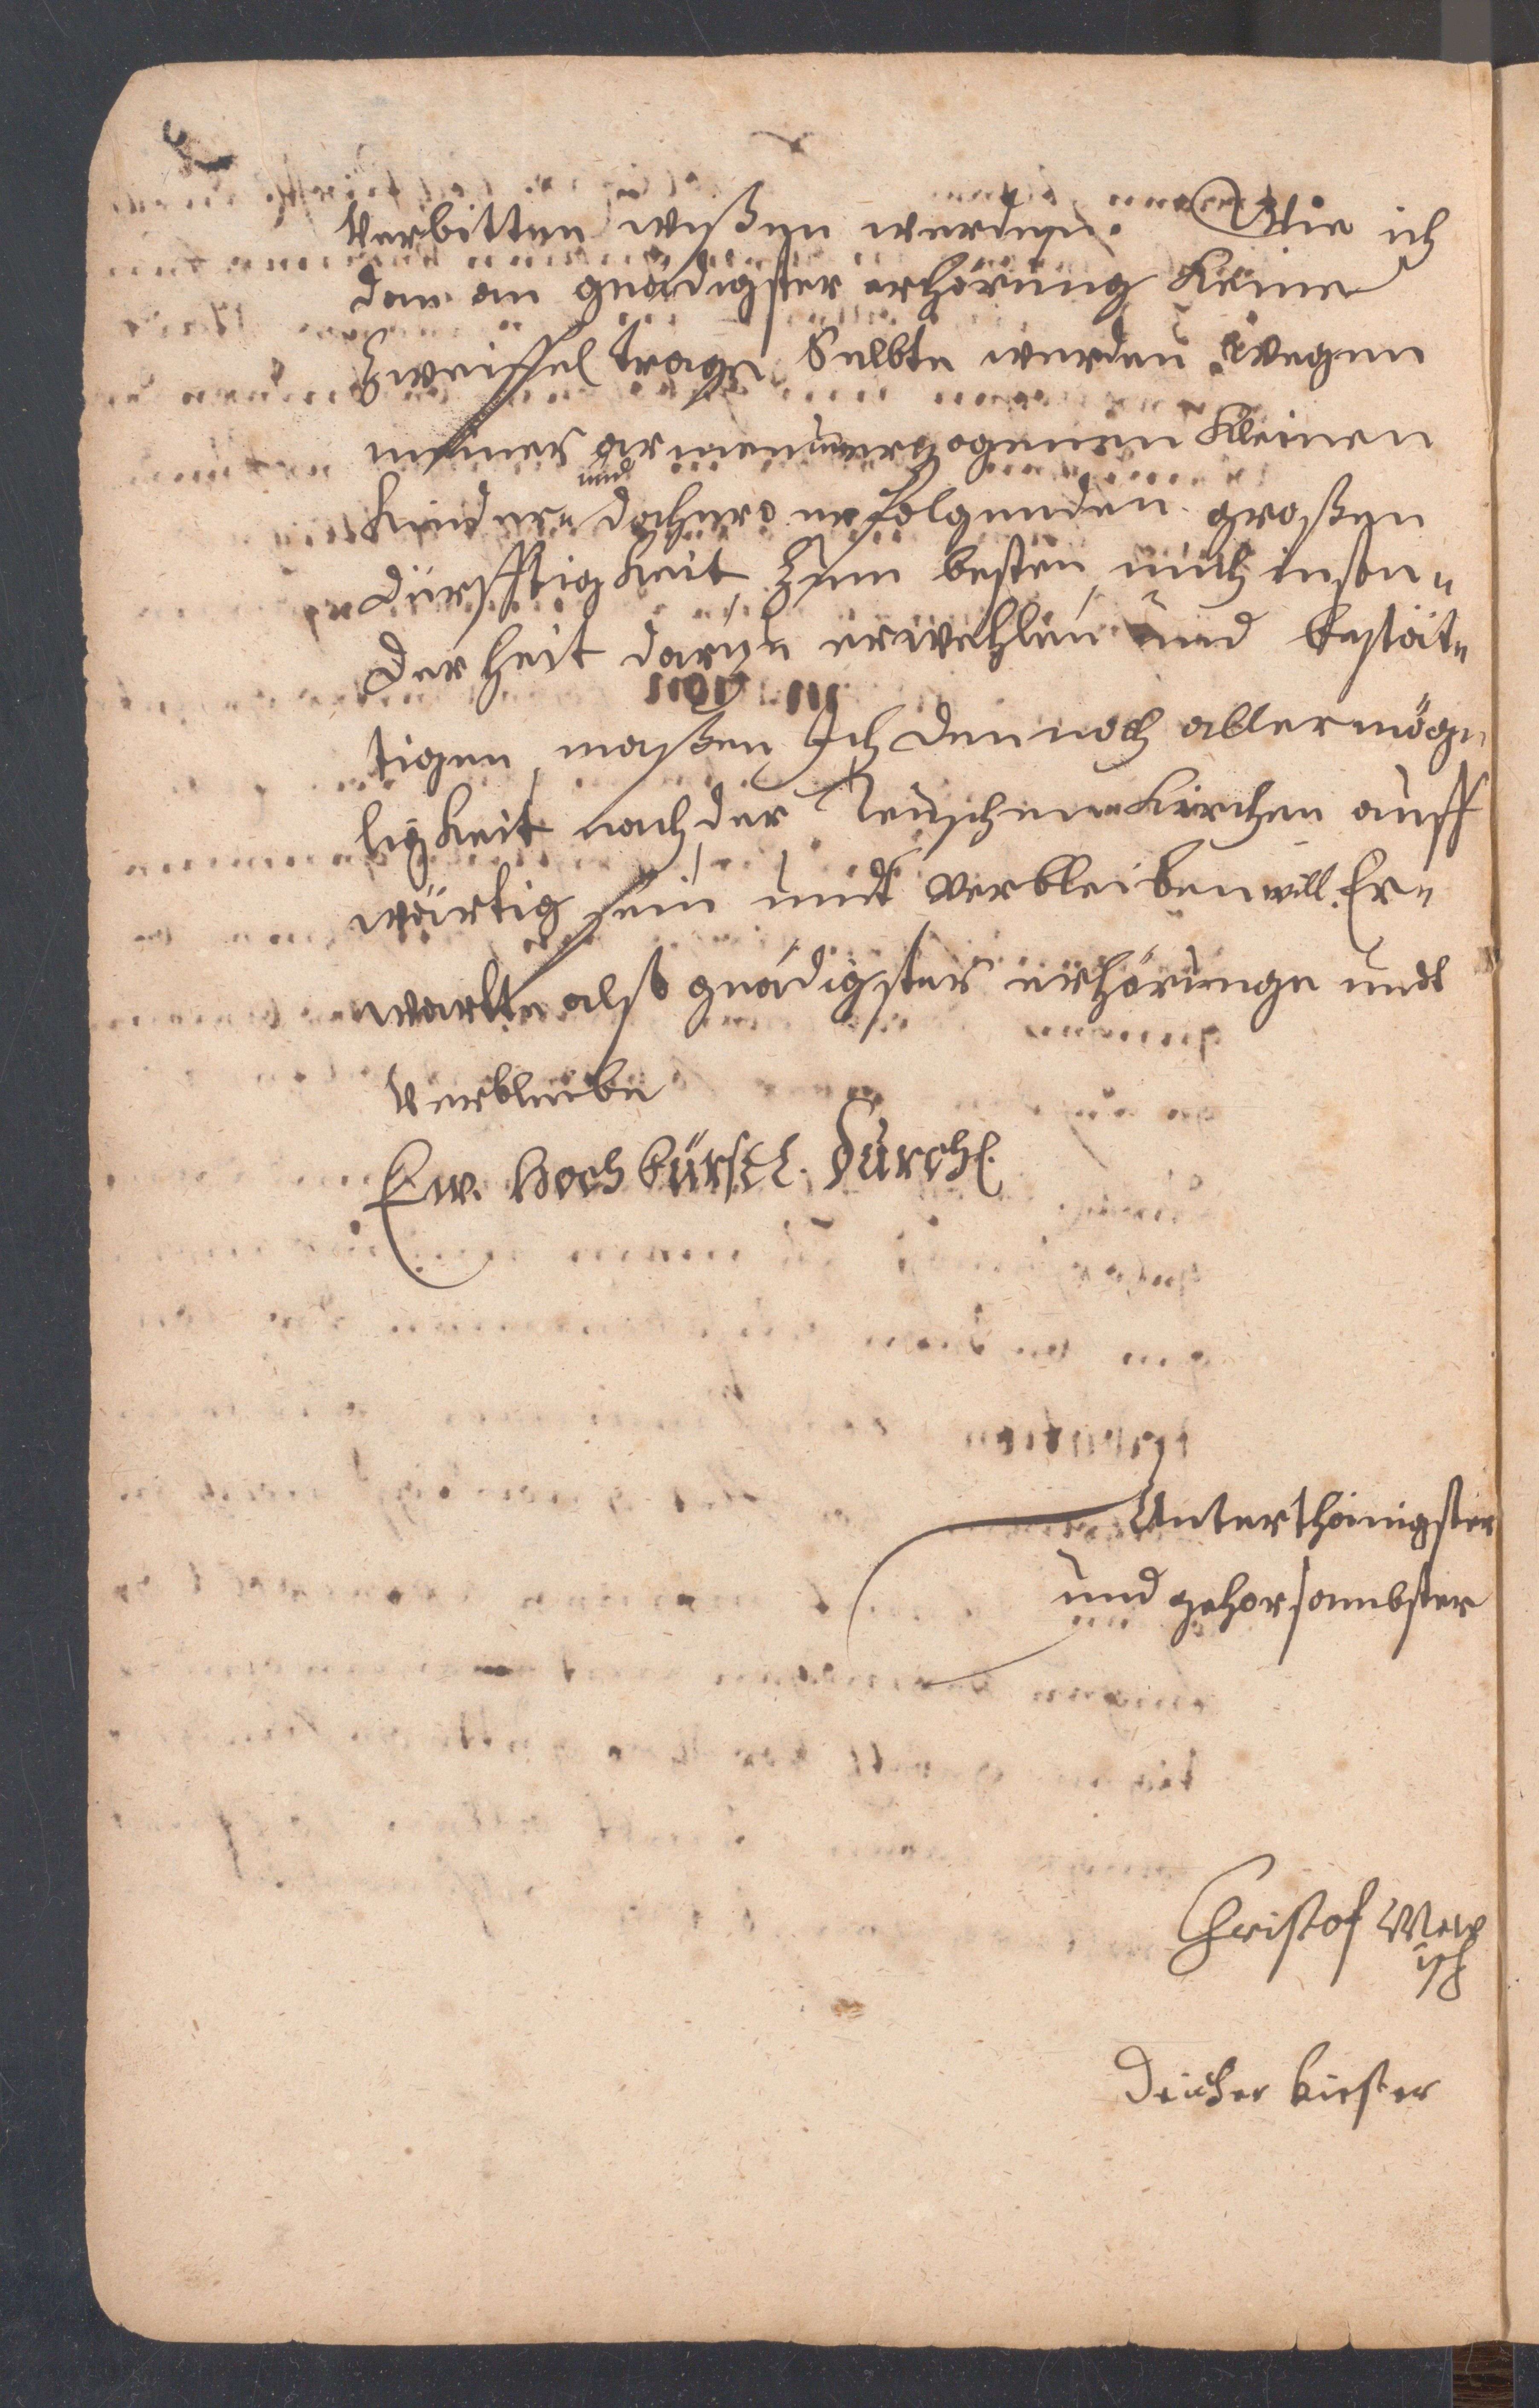 verbitten wißen werden. Wie ich
dan an gnädigster erhörung keine
Zweiffel trage, Selbte werden wegen
meiner armen unerzogenen kleinen
Kinder, und dahero erfolgenden großen
dürfftigkeit zum besten mich inson-
derheit darzu erwehlen und bestät-
tigen, maßen Ich dennoch aller mög-
ligkeit nach, der Teuschen Kirchen auff
wärtig sein undt verbleiben will. Er-
wartte alß gnädigster erhörunge undt
verbleibe
Ew. Hochfürstl. Durchl.
Unterthänigster
und gehorsambster
Christof
Kirster